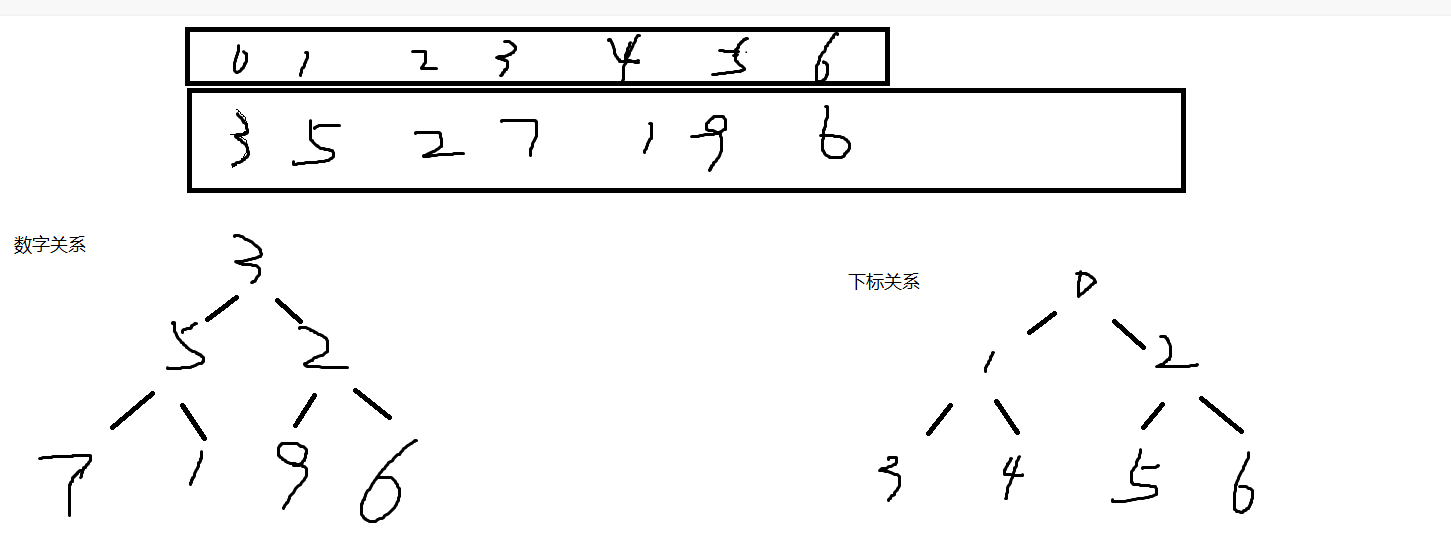 0 1 2 3 4 5 6
3 5 2 7 1 9 6
数字关系
3
5 2
7 1 9 6
下标关系
0
1 2
3 4 5 6